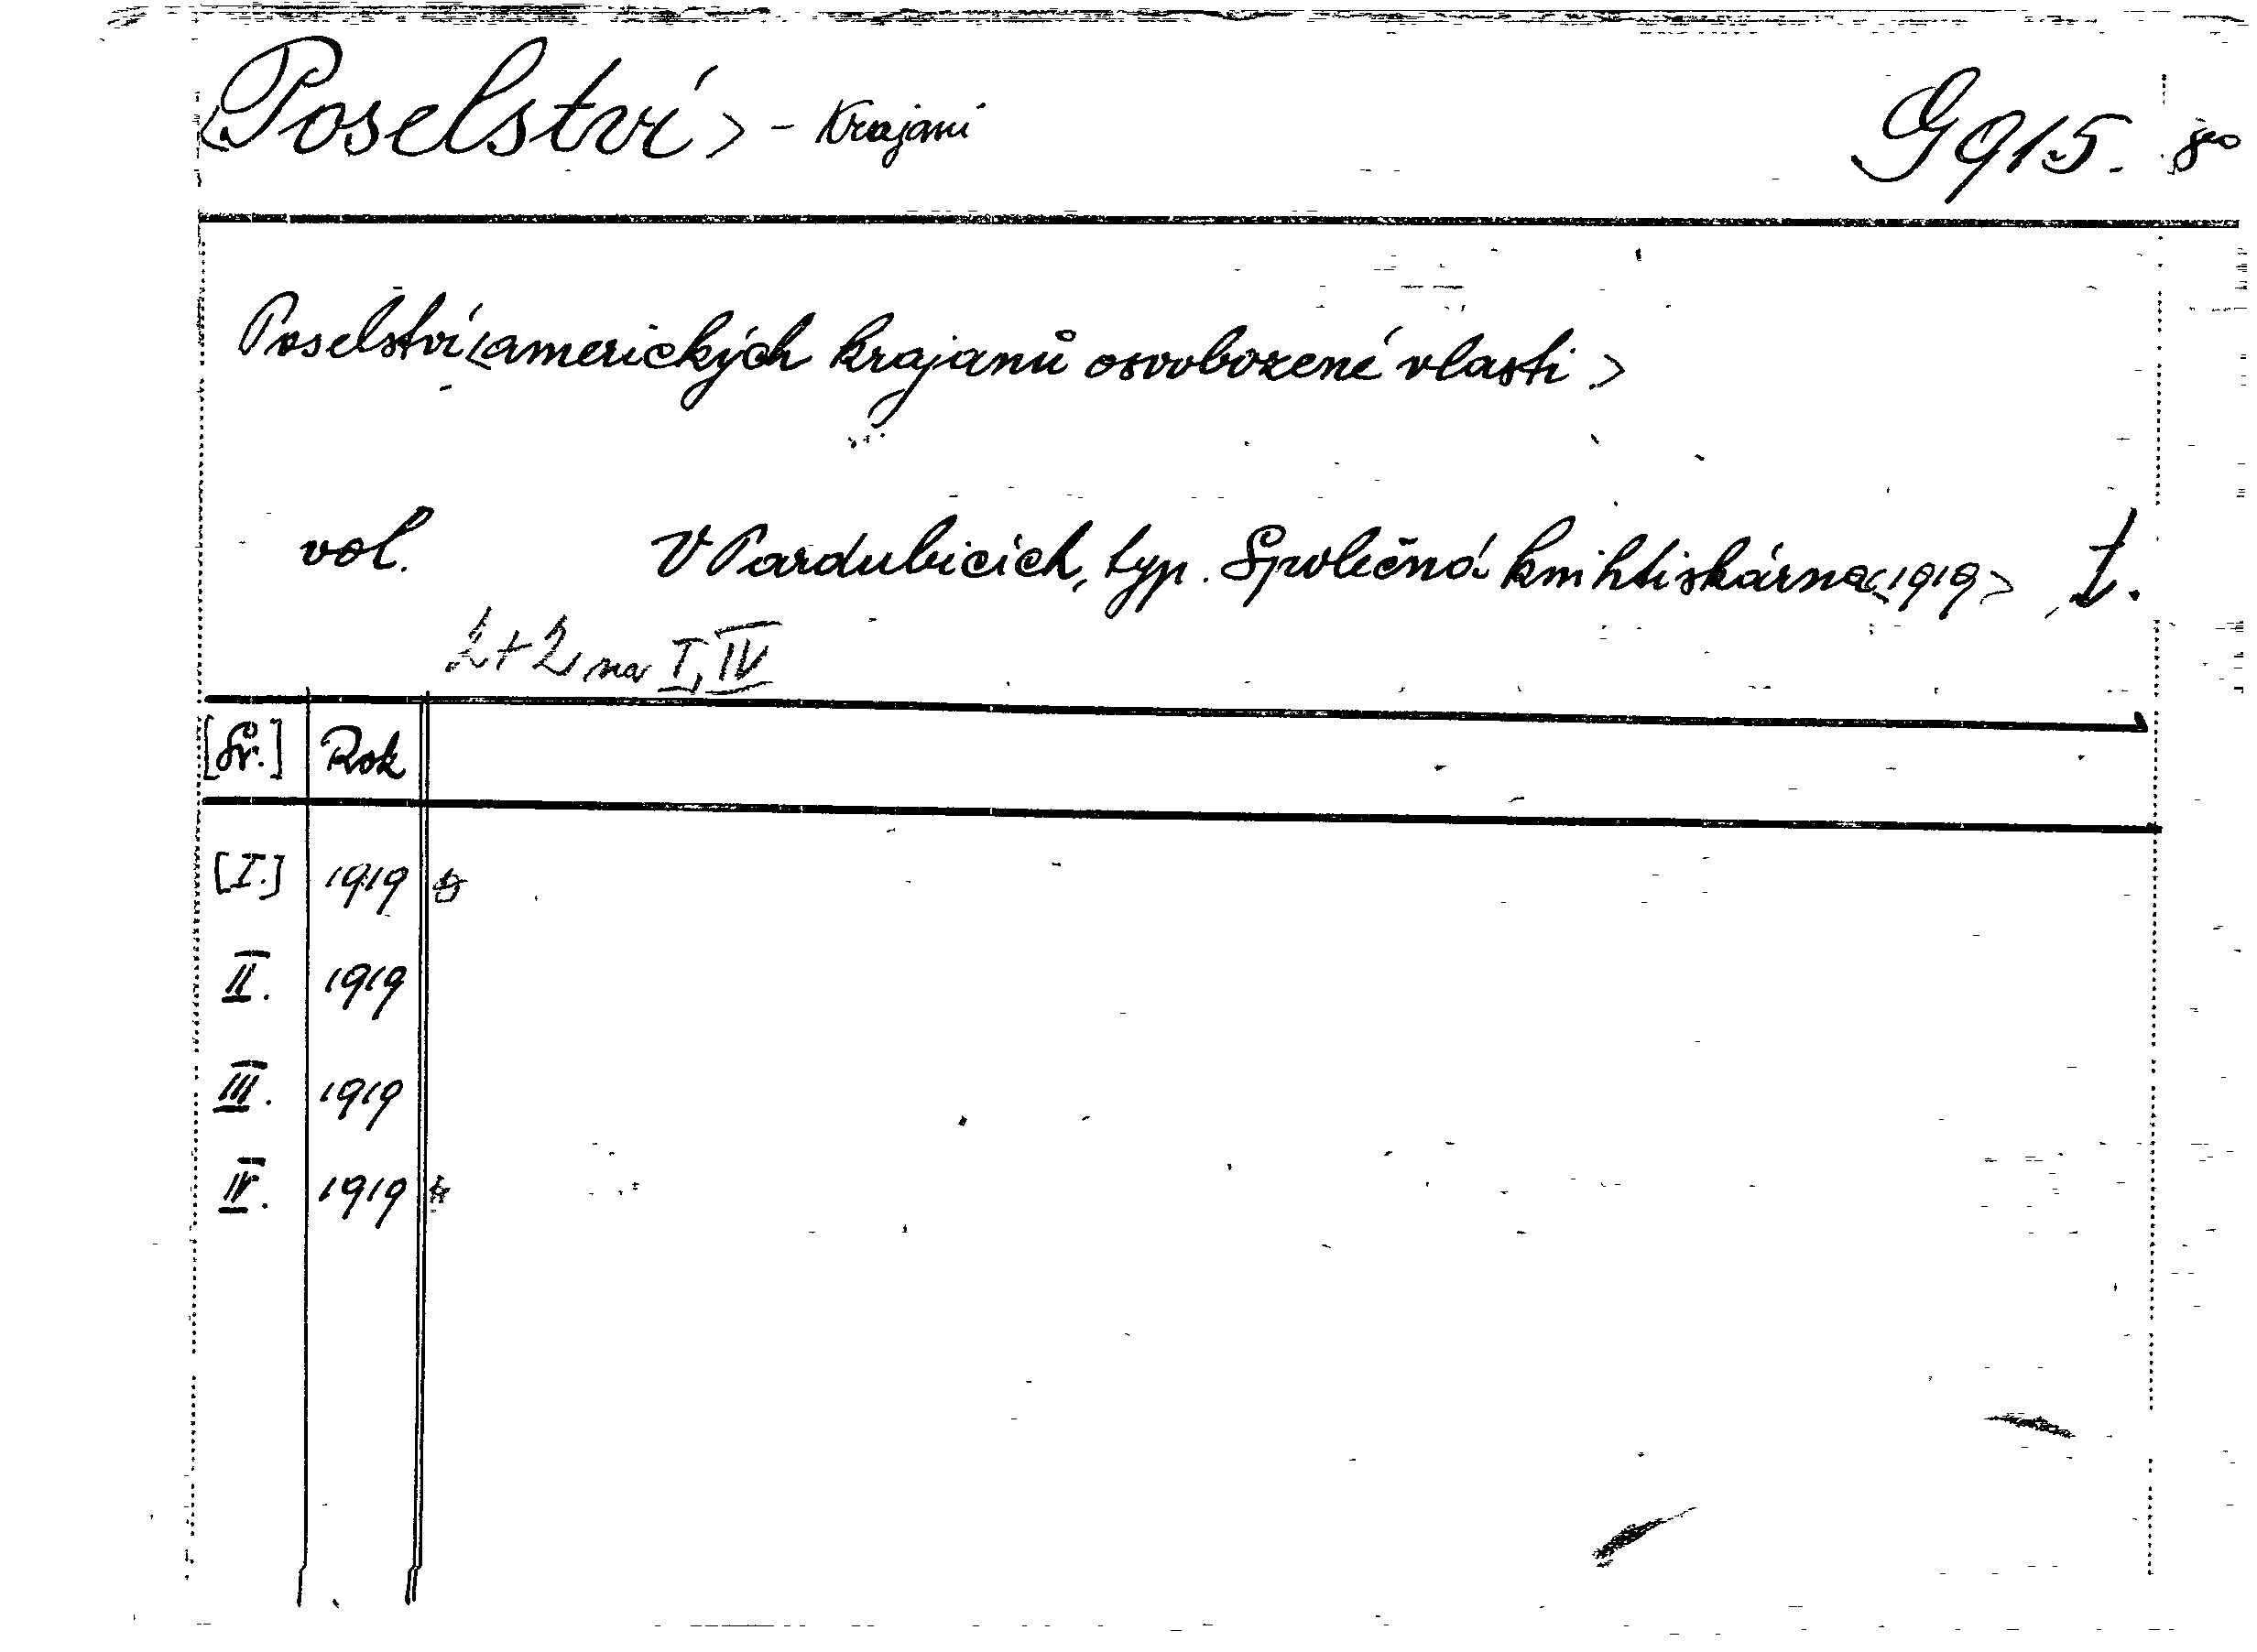 <Poselství> - Krajani G 915.
Poselství <amerických krajanů osvobozené vlasti.>
vol. V Pardubicích, typ. Společná knihtiskárna <1919> I.
2+2 na I, IV
[Sv.] Rok
[I.] 1919
II. 1919
III. 1919
IV. 1919